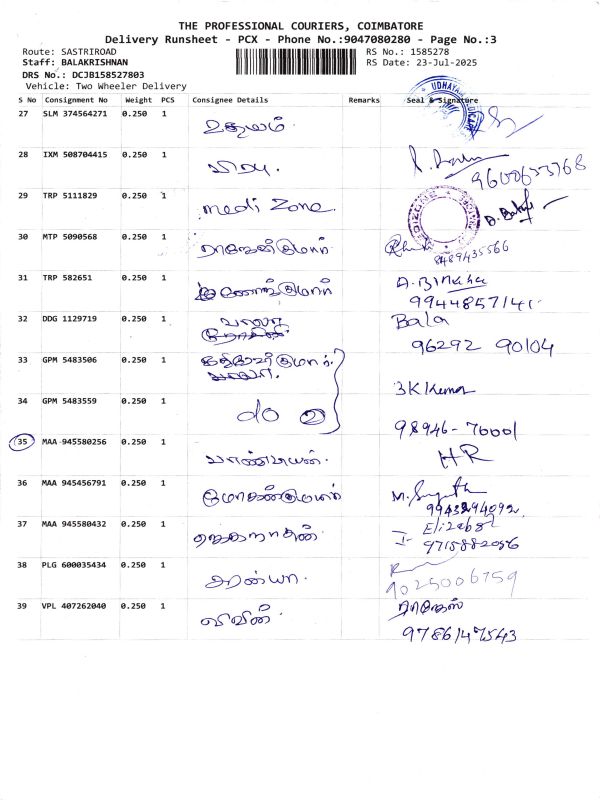 THE PROFESSIONAL COURIERS, COIMBATORE
Delivery Runsheet - PCX - Phone No.:9047080280 - Page No.:3
Route: SASTRIROAD
RS No.: 1585278
Staff: BALAKRISHNAN
RS Date: 23-Jul-2025
DRS No.: DCJB158527803
Vehicle: Two Wheeler Delivery
S No Consignment No Weight PCS Consignee Details Remarks Seal & Signature
27 SLM 374564271 0.250 1 உதயம்.
28 IXM 508704415 0.250 1
9600633768
29 TRP 5111829 0.250 1 Medi Zone.
30 MTP 5090568 0.250 1 ராஜேஷ்குமார்
8489435566
31 TRP 582651 0.250 1
9944857141
32 DDG 1129719 0.250 1 பாலா Bala
96292 90104
33 GPM 5483506 0.250 1
34 GPM 5483559 0.250 1 do 2
98946-70001
35 MAA 945580256 0.250 1 பாண்டியன். HR
36 MAA 945456791 0.250 1
9943294092
37 MAA 945580432 0.250 1 ஜெகநாதன்.
9715882056
38 PLG 600035434 0.250 1 சரண்யா.
9025006759
39 VPL 407262040 0.250 1 விபின். ராஜேஸ்
9786147543